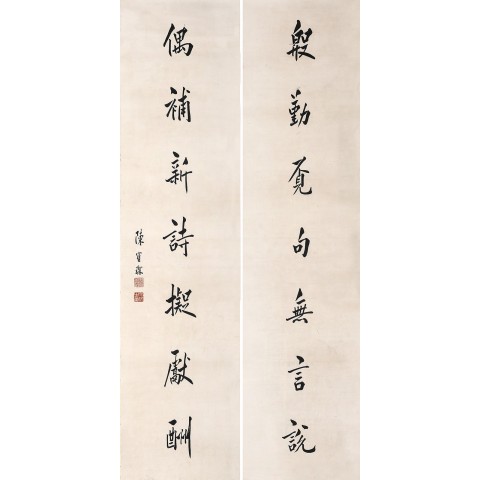 殷勤覓句無言說
偶補新詩擬獻酬
陳寶琛